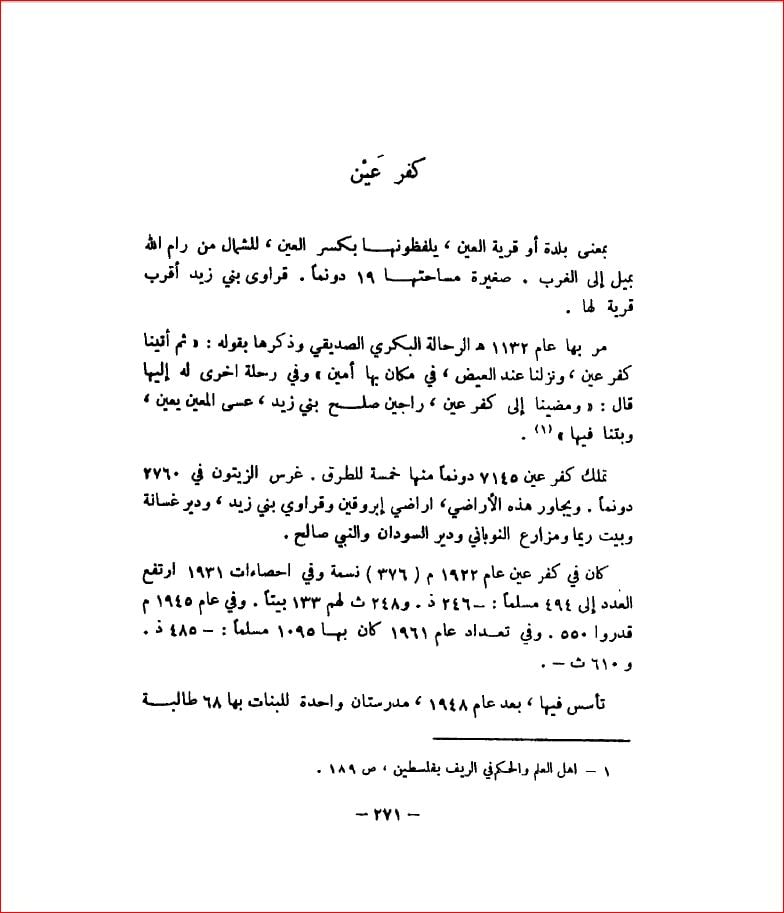 كفر عَيْن
بمعنى بلدة أو قرية العين ، يلفظونهـــا بكسر العين ، للشمال من رام الله
بميل إلى الغرب . صغيرة مساحتهـــا ١٩ دونماً . قراوى بني زيد أقرب
قرية لها .
مر بها عام ١١٣٢ هـ الرحالة البكري الصديقي وذكرها بقوله : « ثم أقينا
كفر عين ، ونزلنا عند العيض ، في مكان بها أمين » وفي رحلة اخرى له إليها
قال : « ومضينا إلى كفر عين ، راجين صلـــح بني زيد ، عسى المعين يعين ،
وبتنا فيها » (١) .
تملك كفر عين ٧١٤٥ دونماً منها خمسة للطرق . غرس الزيتون في ٢٧٦٠
دونماً . ويجاور هذه الأراضي، اراضي إبروقين وقراوي بني زيد ، ودير غسانة
وبيت ريما ومزارع النوباني ودير السودان والنبي صالح .
كان في كفر عين عام ١٩٢٢ م ( ٣٧٦ ) نسمة وفي احصاءات ١٩٣١ ارتفع
العدد إلى ٤٩٤ مسلماً : – ٢٤٦ ذ . و٢٤٨ ث لهم ١٣٣ بيتاً . وفي عام ١٩٤٥ م
قدروا ٥٥٠ . وفي تعـداد عام ١٩٦١ كان بهـا ١٠٩٥ مسلماً : – ٤٨٥ ذ .
و ٦١٠ ث – .
تأسس فيها ، بعد عام ١٩٤٨ ، مدرستان واحدة للبنات بها ٦٨ طالبـــة
١ – اهل العلم والحكم في الريف بفلسطين ، ص ١٨٩ .
– ٢٧١ –